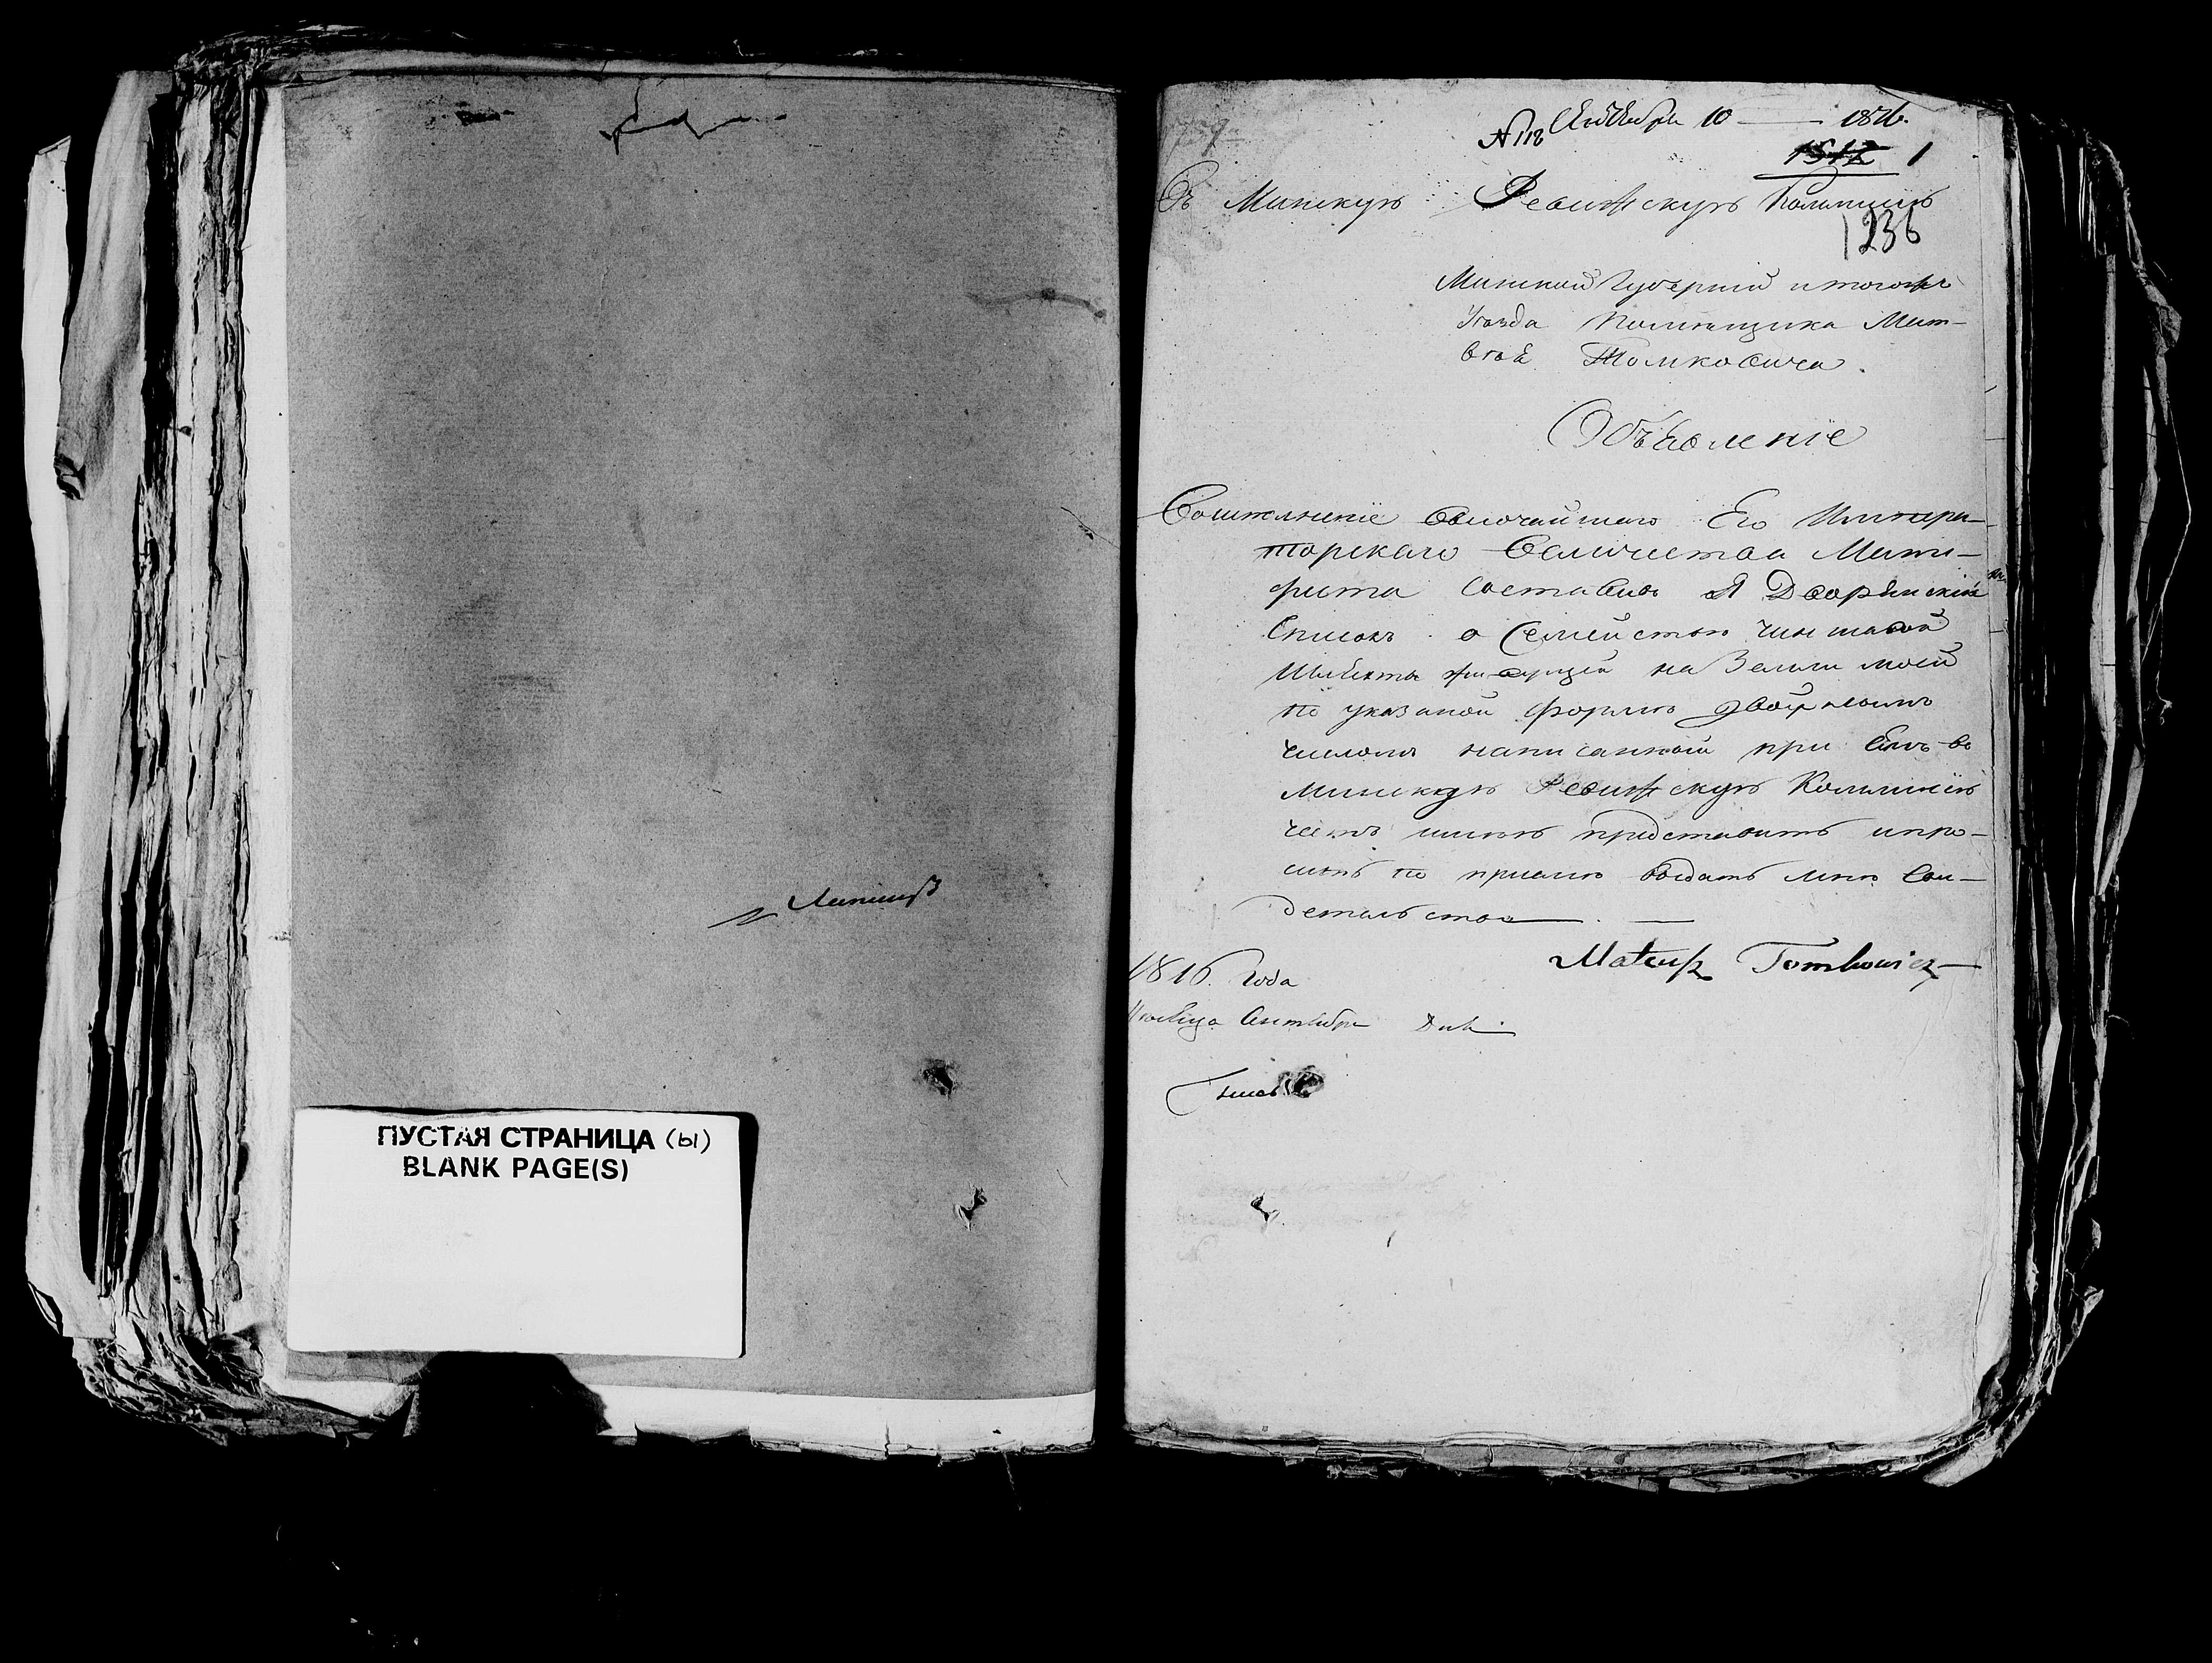 ПУСТАЯ СТРАНИЦА (ы)
BLANK PAGE(S)
№ 118 Октября 10 — 1816.
1512 1
Въ Минскую Ревижскую Комиссию
1236
Минской Губернии итогожъ
Уезда Помещика Мат-
вея Томковича.
Объявленіе
Высочайшаго Его Импера-
торскаго Величества Мани-
феста составивъ я Дворянский
Списокъ о Семействе чиншевой
Шляхты живущей на Земли моей
по указаной форме двойнымъ
числомъ написанной при семъ въ
Минскую Ревижскую Коммисію
честь имею представить ипро-
сить по приеме выдать мне Сви-
детельство
Mateusz Tomkowicz
1816. Года
Месяца Сентября Дня